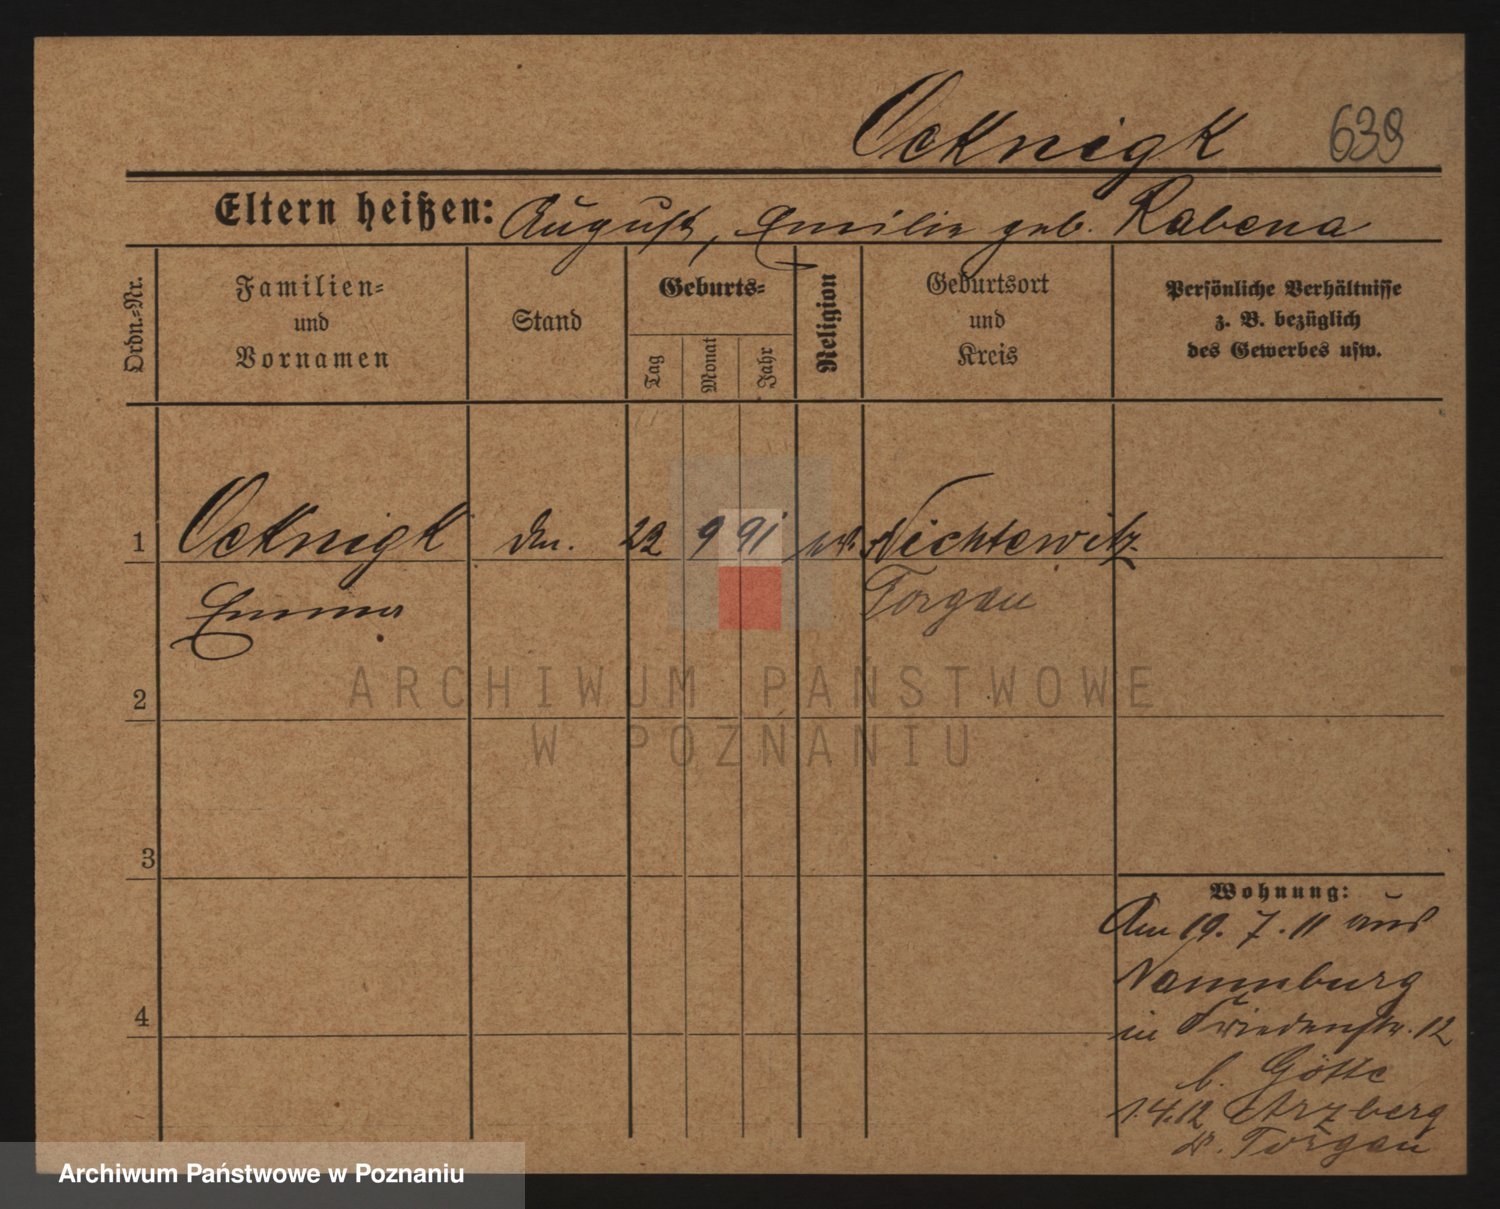 Ocknigk 639
Eltern heißen: August, Emilie geb. Rabena
Ordn.=Nr.
Familien=
und
Vornamen
Stand
Geburts=
Tag
Monat
Jahr
Religion
Geburtsort
und
Kreis
Persönliche Verhältnisse
z. B. bezüglich
des Gewerbes usw.
1 Ocknigk 22 9 91 Nichtewitz
Emma Torgau
ARCHIWUM PAŃSTWOWE
W POZNANIU
2
3
4
Wohnung:
Am 19. 7. 11 aus
Naumburg
in Friedenstr. 12
b. Götte
1.4.12 Arzberg
Torgau
Archiwum Państwowe w Poznaniu